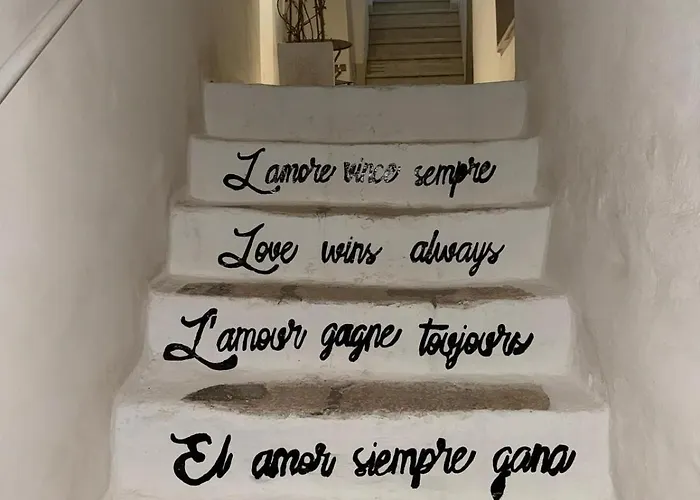 L amore vince sempre
Love wins always
L'amour gagne toujours
El amor siempre gana